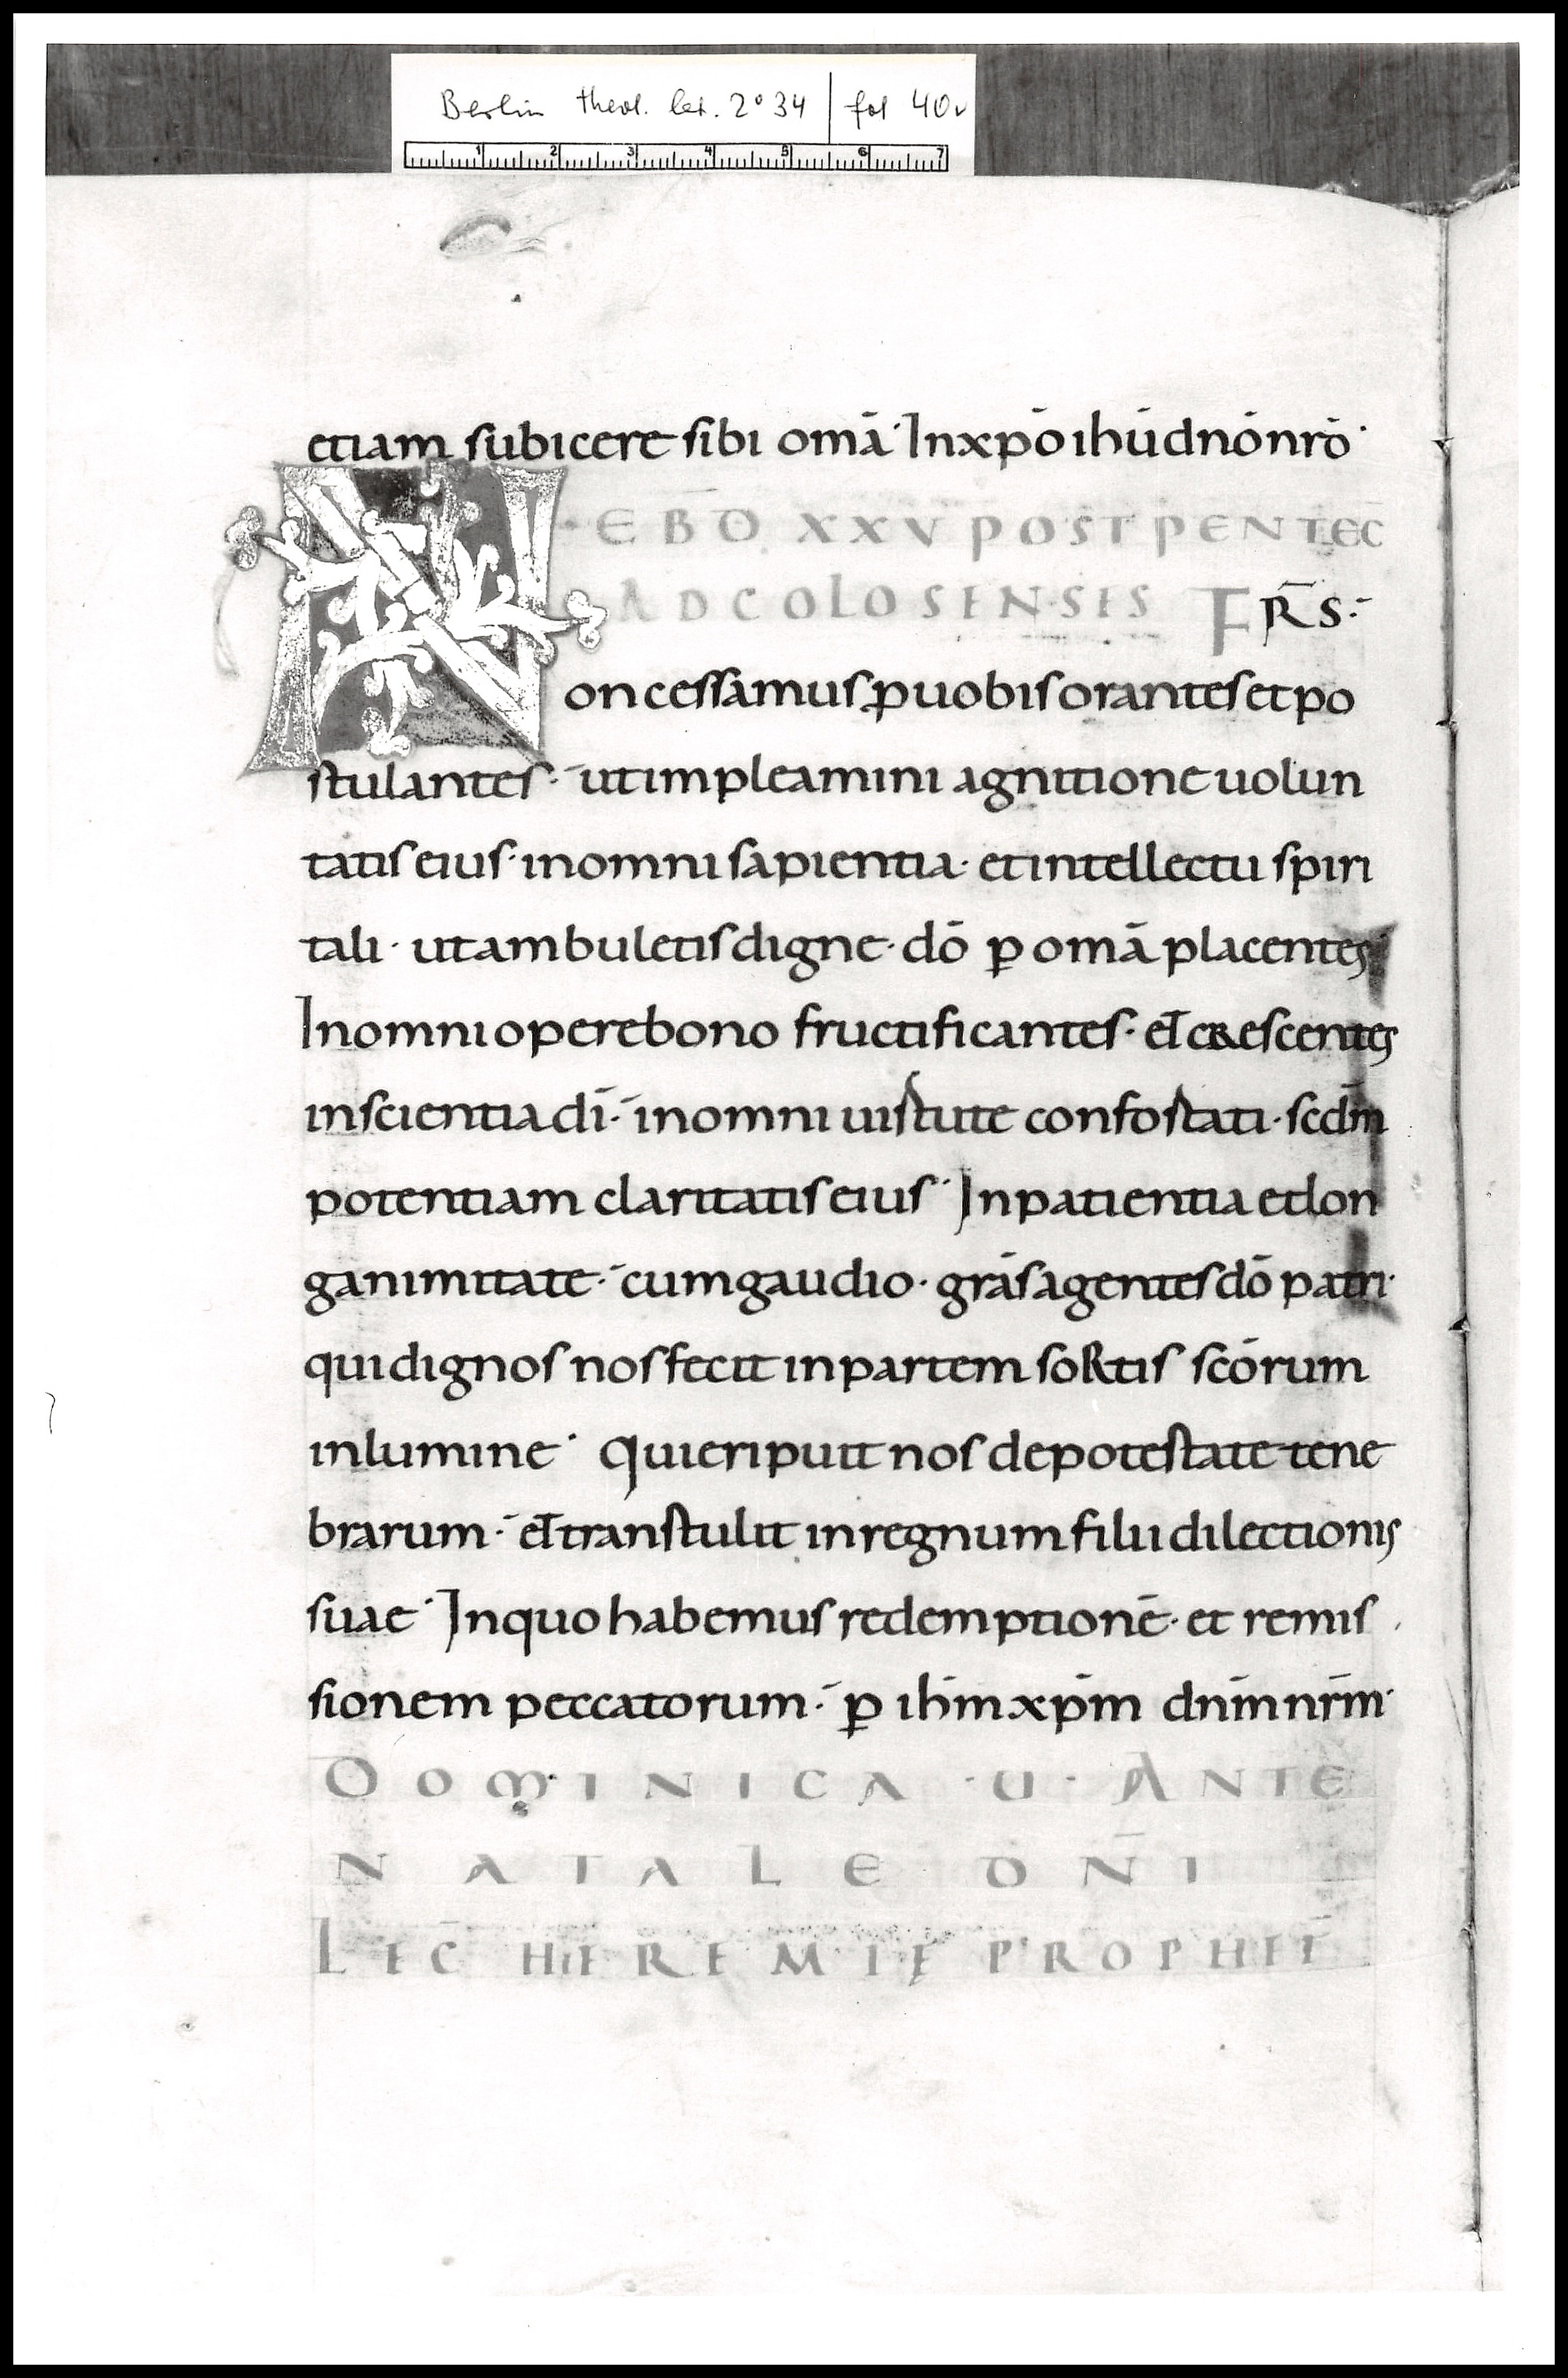 Berlin theol. lat. 2° 34 | fol 40v
1 2 3 4 5 6 7
etiam subicere sibi omā· In xpō ihū dnō nrō·
EBD XXV POST PENTEC̄
AD COLOSENSIS FR̄S·
Non cessamus p uobis orantes et po
stulantes· ut impleamini agnitione uolun
tatis eius· in omni sapientia· et intellectu spiri
tali· ut ambuletis digne· dō p omā placentes·
In omni opere bono fructificantes· et crescentes
in scientia dī· in omni uirtute confortati· scdm̄
potentiam claritatis eius· In patientia et lon
ganimitate· cum gaudio· grās agentes dō patri·
qui dignos nos fecit in partem soRtis scōrum
in lumine· Qui eripuit nos de potestate tene
brarum· et transtulit in regnum filii dilectionis
suae· In quo habemus redemptionē· et remis
sionem peccatorum· p ihm̄ xpm̄ dnm̄ nrm̄·
DOMINICA ·U· ANTE
NATALE DN̄I
LEC̄ HIEREMIĘ PROPHET̄